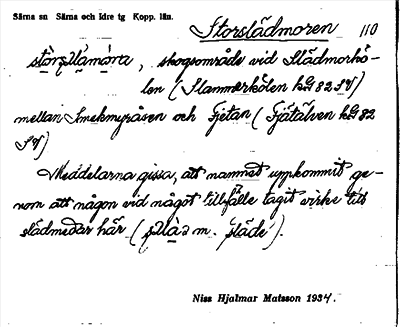 Särna sn Särna och Idre tg Kopp. län.
Storslädmoren 110
skogsområde vid Slädmorhö-
len (Slammerkölen kbl 82 SV)
mellan Smekmyråsen och Fjetan (Fjätälven kbl 82
SV)
Meddelarna gissa, att namnet uppkommit ge-
nom att någon vid något tillfälle tagit virke till
slädmedar här ( m. släde).
Niss Hjalmar Matsson 1934.